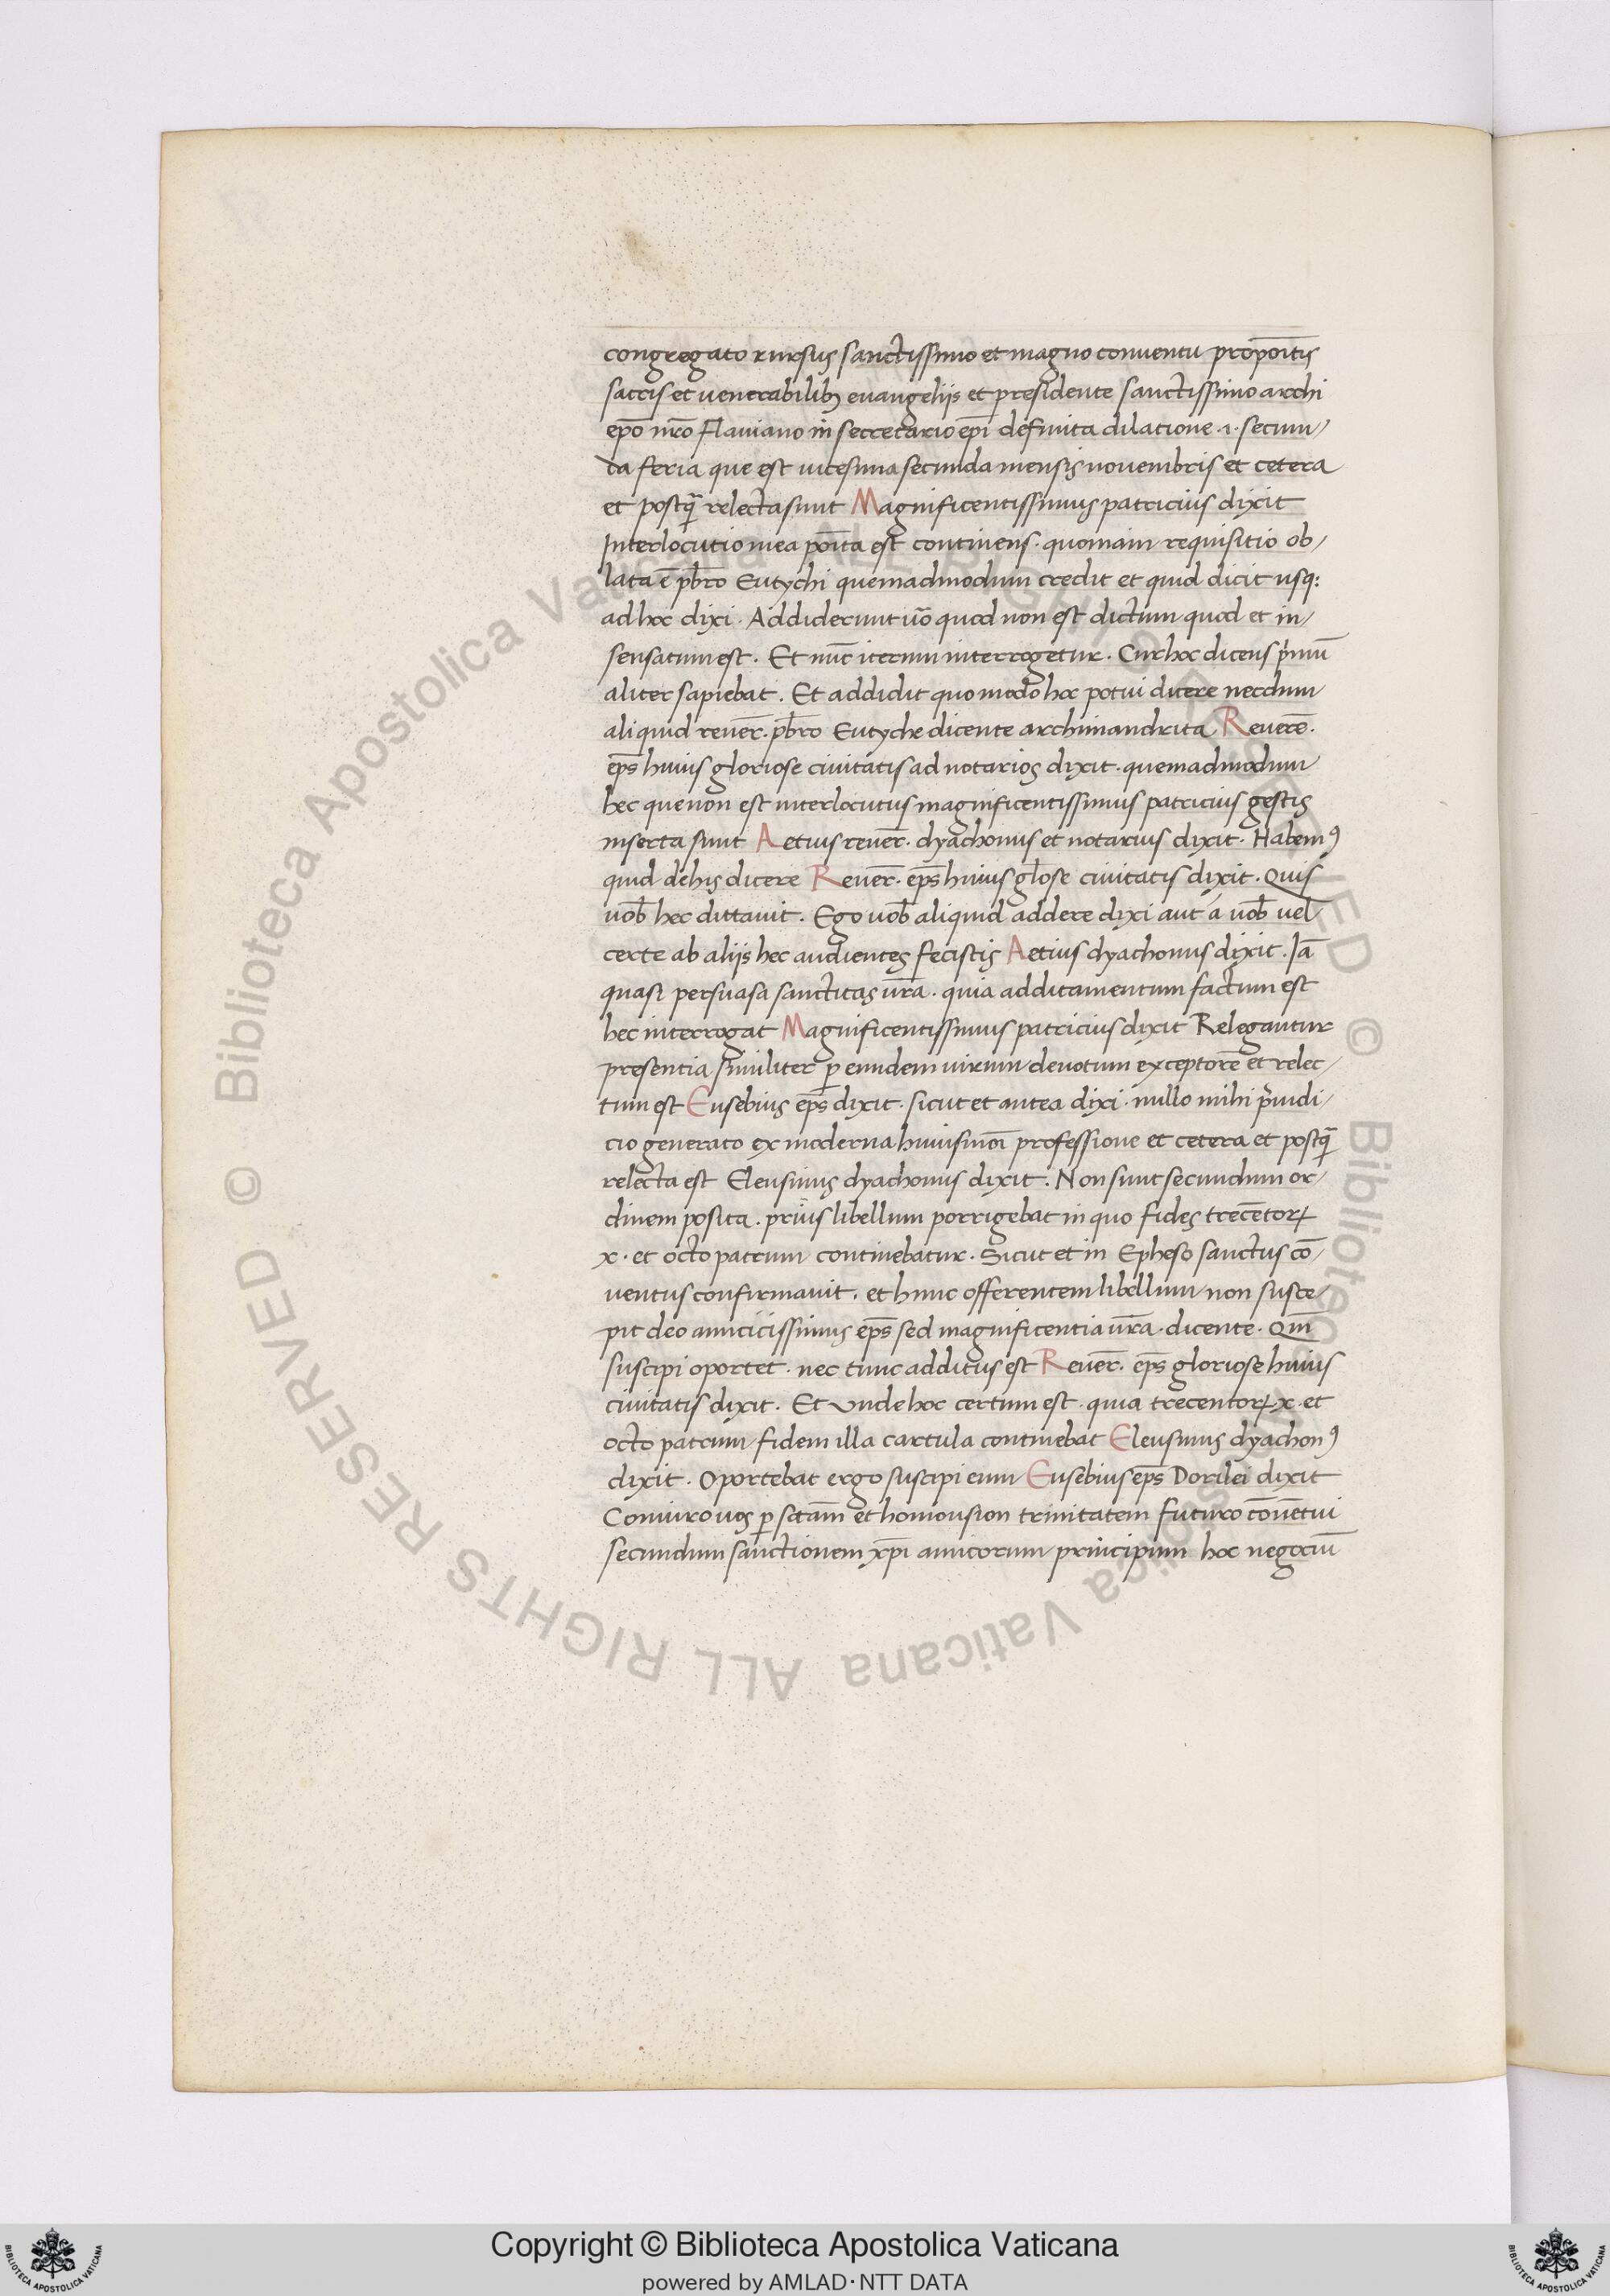 congregato rursus sanctissimo et magno conuentu propōitis
sacris et uenerabilibꝫ euangeliis et presidente sanctissimo archi
ep̄o nr̄o Flauiano in secretario ep̄i definita dilatione .1. secun/
da feria que est uicesima secunda mensis nouembris et cetera
et postq̄ relecta sunt Magnificentissimus patricius dixit
Interlocutio mea pōita est continens . quoniam requisitio ob/
lata ē pb̄ro Eutychi quemadmodum credit et quid dicit usq:
ad hoc dixi . Addiderunt uō quod non est dictum quod et in/
sensatum est . Et nūc iterum interrogetur . Cur hoc dicens p̄mū
aliter sapiebat . Et addidit quo modo hoc potui dicere necdum
aliquid reuer̄ . pb̄ro Eutyche dicente archimandrita Reuerē .
ep̄s huius gloriose ciuitatis ad notarios dixit . quemadmodum
hec que non est interlocutus magnificentissimus patricius gestis
inserta sunt Aetius reuer̄ . dyachonus et notarius dixit . Habemꝯ
quid de his dicere Reuer̄ . ep̄s huius glōse ciuitatis dixit . Quis
uob̄ hec dictauit . Ego uob̄ aliquid addere dixi aut a uob̄ uel
certe ab aliis hec audientes fecistis Aetius dyachonus dixit . Iā
quasi persuasa sanctitas ur̄a . quia additamentum factum est
hec interrogat Magnificentissimus patricius dixit Relegantur
presentia similiter ꝑ eundem uirum deuotum exceptorē et relec/
tum est Eusebius ep̄s dixit . sicut et antea dixi . nullo mihi p̄iudi/
cio generato ex moderna huiusmōi professione et cetera et postq̄
relecta est Eleusinus dyachonus dixit . Non sunt secundum or/
dinem posita . prius libellum porrigebat in quo fides trecētorꝝ
x . et octo patrum continebatur . Sicut et in Epheso sanctus cō/
uentus confirmauit . et hunc offerentem libellum non susce/
pit deo amicicissimus ep̄s sed magnificentia ur̄a . dicente . Qm̄
suscipi oportet . nec tunc additus est Reuer̄ . ep̄s gloriose huius
ciuitatis dixit . Et unde hoc certum est . quia trecentorꝝ x . et
octo patrum fidem illa cartula continebat Eleusinus dyachonꝯ
dixit . Oportebat ergo suscipi eum Eusebius ep̄s Dorilei dixit
Coniuro uos ꝑ sctām et homousion trinitatem futuro cōuētui
secundum sanctionem xp̄i amicorum principum hoc negociū
Copyright © Biblioteca Apostolica Vaticana
powered by AMLAD・NTT DATA